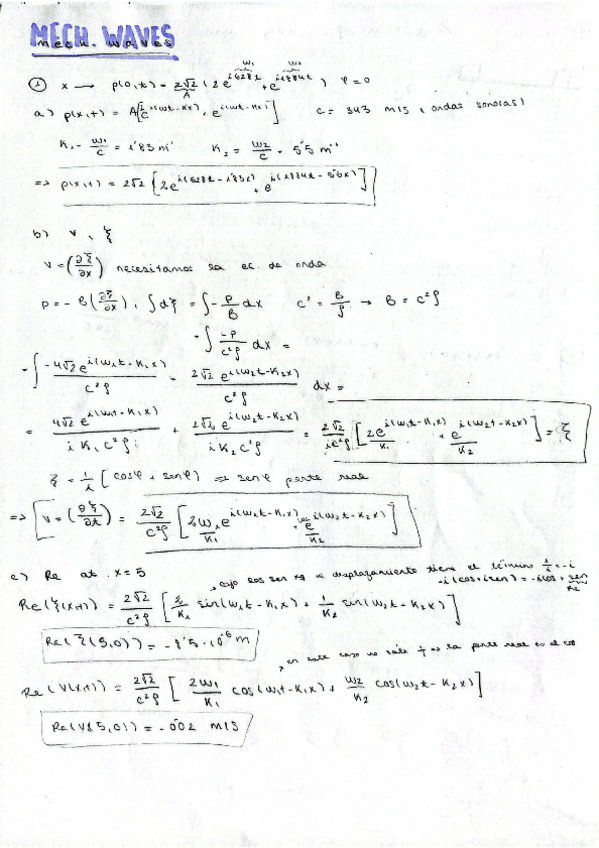 MECH. WAVES
① x → p(0,t) = 2√2 (2e^{i628t} + e^{i1884t}) φ=0
A w₁ w₂
a) p(x,t) = A[e^{i(wt-kx)} + e^{i(wt-kx)}] c = 343 m/s (ondas sonoras)
K₁ = w₁/c = 1'83 m⁻¹ K₂ = w₂/c = 5'5 m⁻¹
=> p(x,t) = 2√2 [2e^{i(628t - 1'83x)} + e^{i(1884t - 5'5x)}]
b) v, ξ
v = (∂ξ/∂x) necesitamos la ec. de onda
p = -B(∂ξ/∂x), ∫dξ = ∫-p/B dx c² = B/ρ → B = c²ρ
-∫ -p/c²ρ dx =
-∫ -4√2 e^{i(w₁t-K₁x)}/c²ρ - 2√2 e^{i(w₂t-K₂x)}/c²ρ dx =
= 4√2 e^{i(w₁t-K₁x)}/iK₁c²ρ + 2√2 e^{i(w₂t-K₂x)}/iK₂c²ρ = 2√2/ic²ρ [2e^{i(w₁t-K₁x)}/K₁ + e^{i(w₂t-K₂x)}/K₂] = ξ
ξ = 1/i [cosφ + senφ) => senφ parte real
=> v = (∂ξ/∂t) = 2√2/c²ρ [2w₁e^{i(w₁t-K₁x)}/K₁ + w₂e^{i(w₂t-K₂x)}/K₂]
c) Re at x=5
desplazamiento tiene el término 1/i = -i
-i(cos+isen) = -icos + sen
Re
Re(ξ(x,t)) = 2√2/c²ρ [2/K₁ sin(w₁t-K₁x) + 1/K₂ sin(w₂t-K₂x)]
Re(ξ(5,0)) = -1'5·10⁻⁶ m
en este caso no sale 1/i => la parte real es el cos
Re(v(x,t)) = 2√2/c²ρ [2w₁/K₁ cos(w₁t-K₁x) + w₂/K₂ cos(w₂t-K₂x)]
Re(v(5,0)) = -0'02 m/s